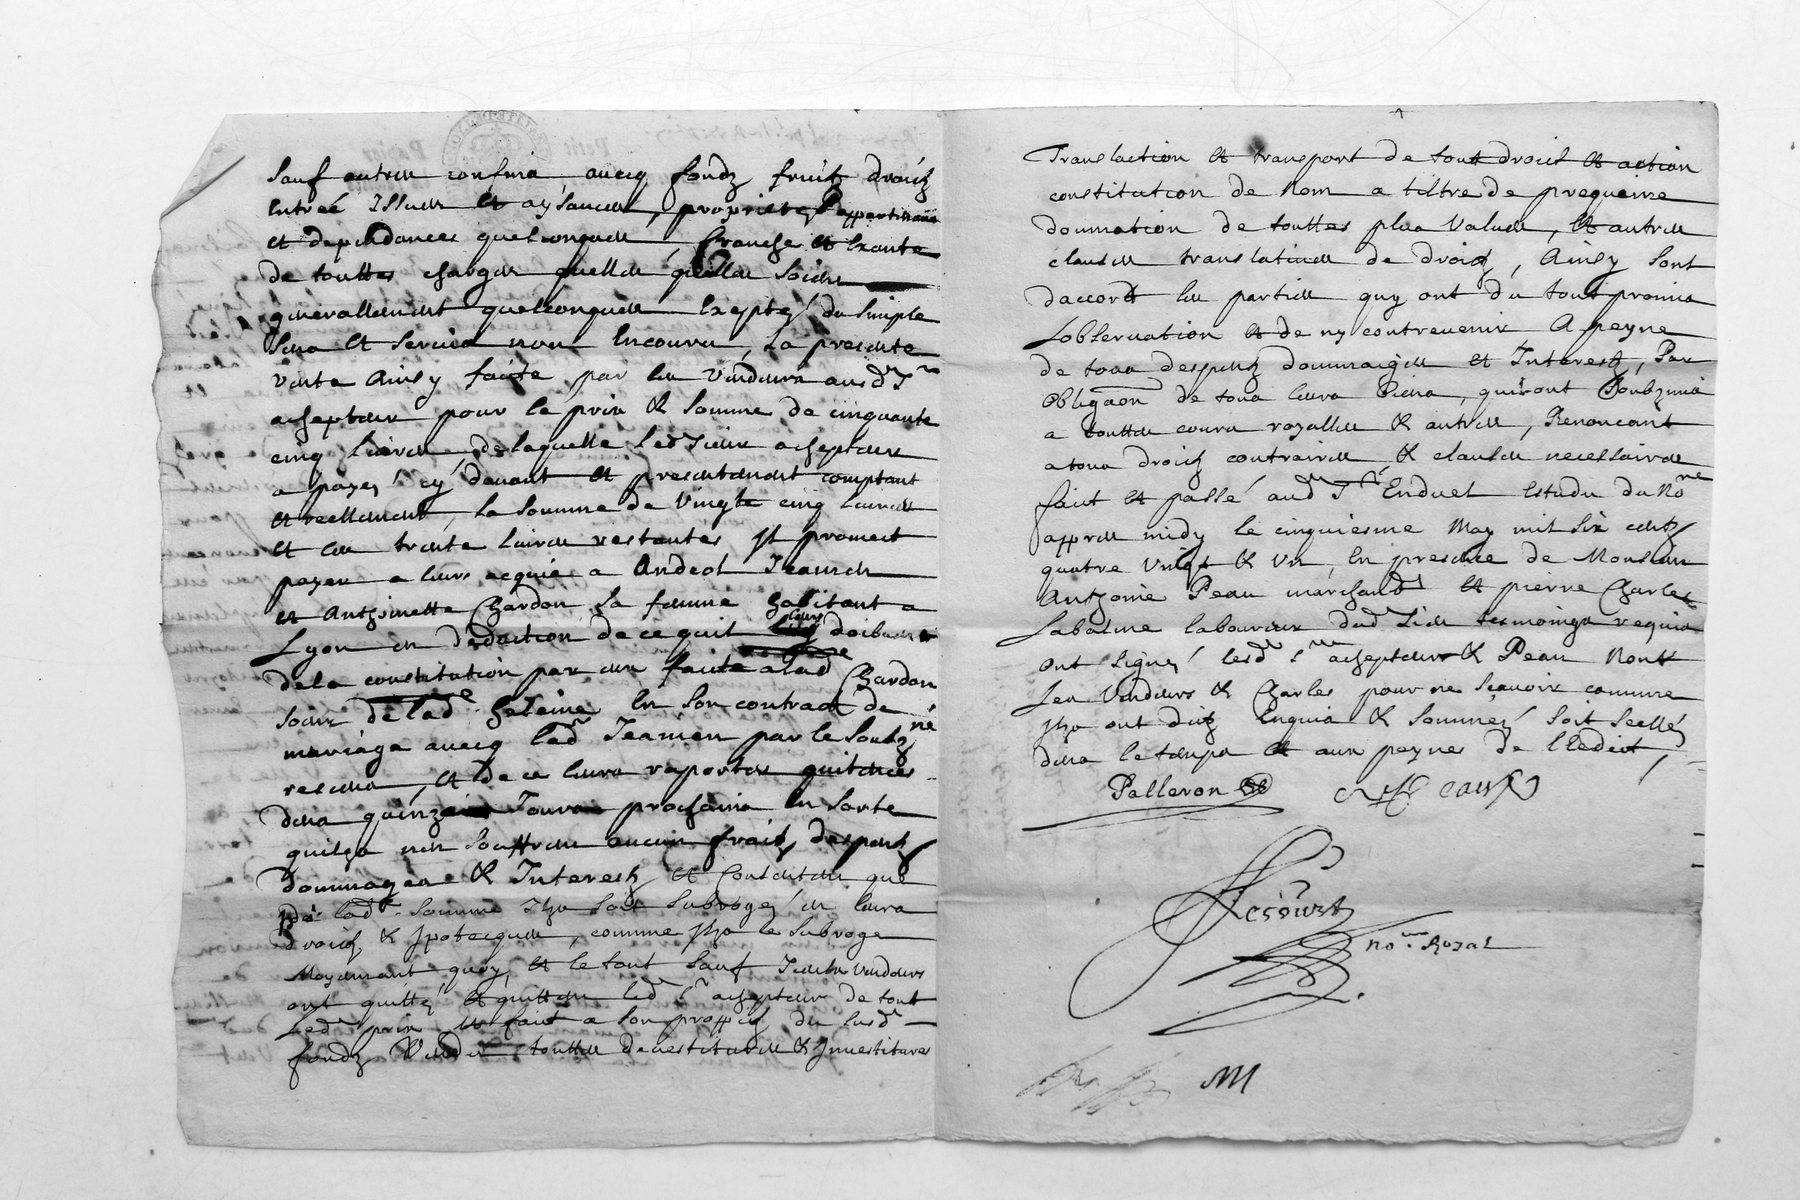 sauf autres confins avecq fondz fruitz droictz
entreé Issues et aysances, proprietés appartenances
et dependances quelconques, franche et Exante
de touttes charges quelles quelles soient
generallement quelconques Exepté du simple
sens et servis non Encouru, La presente
vente Ainsy faicte par les vendeurs aud Sr
achepteur pour le prix & somme de cinquante
cinq Livres de laquelle led Sieur achepteur
a payé cy devant et presentement comptant
et reellement, La somme de Vingte cinq Livres
et les trente livres restantes Il promect
payer a leurs acquis a Andeol Jeamen
et Anthoinette Chardon sa femme habitant a
Lyon en deduction de ce quil leurs doibvent
dela constitution par eux faicte a lad Chardon
soeur de lade heleine En son contract de
mariage avecq led Jeamen par le soubzné
receus, et de ce leurs raporter quitances
dans quinze Jours prochains En sorte
quilz nen souffrent aucun fraictz despentz
dommages & Interestz et Consentent que
de lade somme Ilz soit subrogé en leurs
droictz & Ipotecques, comme Ilz le subroge
Moyennant quoy, et le tout sauf Iceux vendeurs
ont quitté et quittent led sr achepteur de tout
Led prix et fait a son proffict des susd
fondz Vendu touttes devestitures & Investitures
Translaction et transport de tout droict et action
constitution de Nom a tiltre de precquaire
donnation de touttes plus Values, Et autres
clauses translatives de droict, Ainsy sont
daccord les parties quy ont du tout promis
Lobservation et de ny contrevenir A peyne
de tous despentz dommaiges et Interestz, Par
Obligaon de tous leurs Biens, quilz ont Soubzmis
a touttes cours royalles & autres, Renoncant
a tous droictz contraires, & clauses necessaires
faict et passé aud St Enduel Estude du Nore
appres midy le cinquiesme May mil six centz
quatre vingt & Un, En presence de Monsieur
Anthoine Peau marchand et pierre Charles
Labasme laboureur dud Lieu tesmoings requis
ont signé lesd srs achepteur & Peau Nont
Les Vendeurs & Charles pour ne scavoir comme
Ilz ont dict Enquis & sommez soit scellé
dans le temps et aux peynes de lEdict,
Palleron
Peau
Recourt
nore Royal